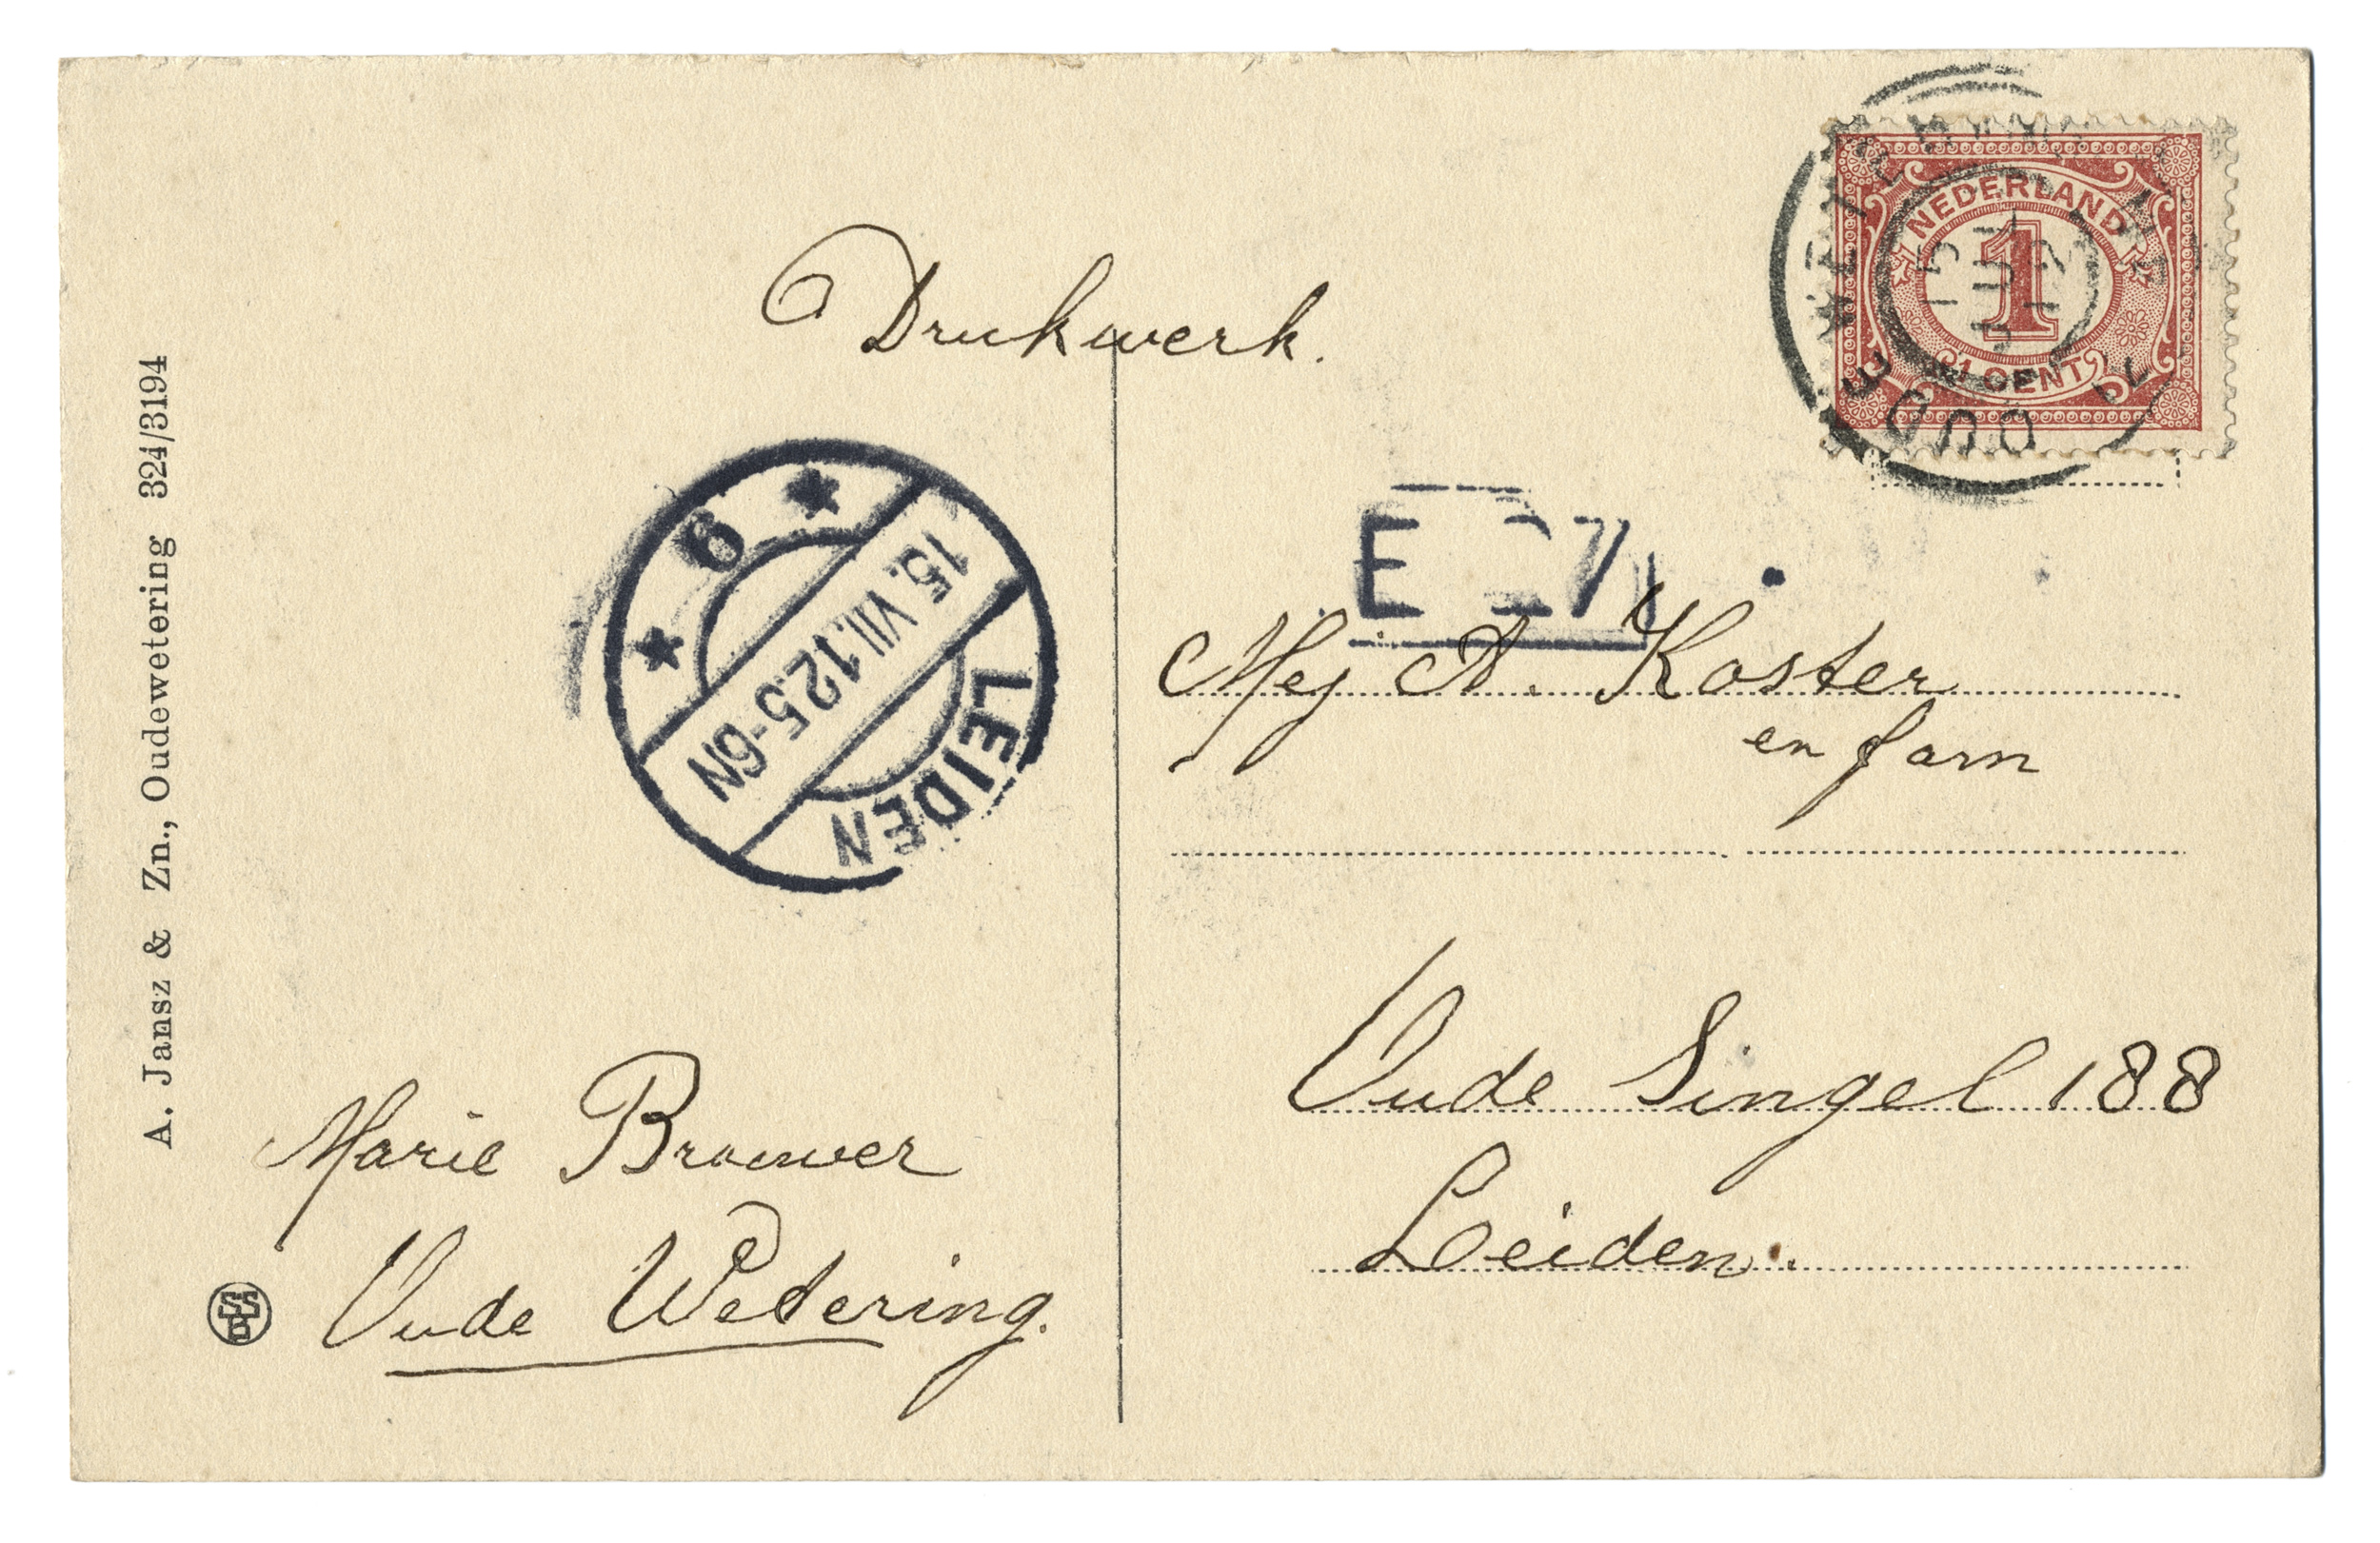 A. Jansz & Zn., Oudewetering 324/3194
Drukwerk.
NEDERLAND
1
1 CENT
OUDE WETERING
15 JUL 12
* 6 *
15.VII.12 5-6N
LEIDEN
E 27
Mej A. Koster
en fam
Oude Singel 188
Leiden.
Marie Brouwer
Oude Wetering.
SSPB